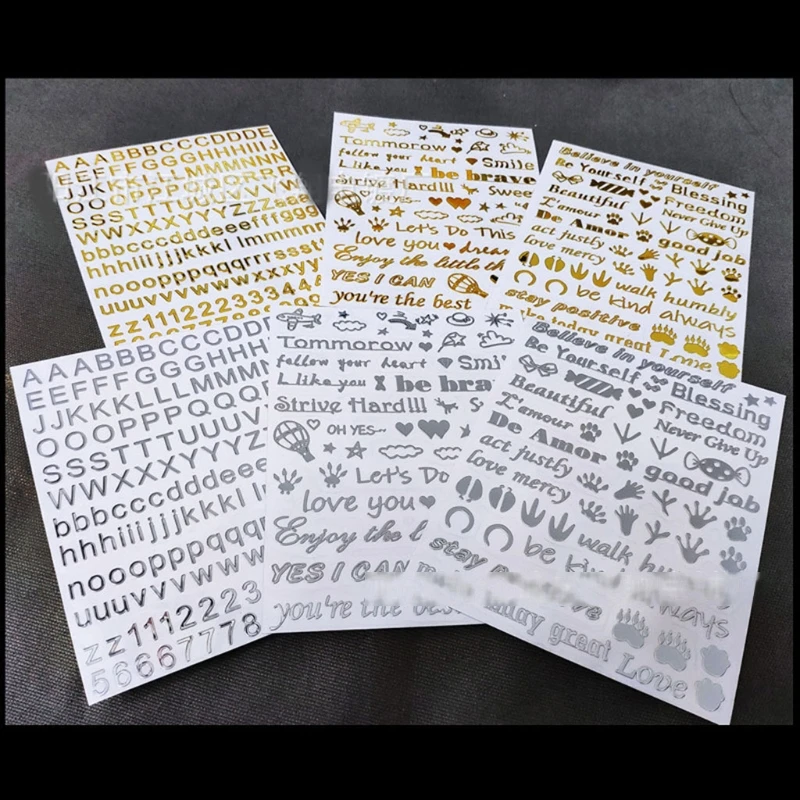 AAABBBCCCDDDE
EEFFFGGGHHHIII
JJKKKLLLMMMNN
OOPPPQQQ
SSSTTTUUU
WWXXXYYYZZ
bbbcccdddeeefffggg
hhhiiijjjkkkl lmmmnnn
nooopppqqqrrrssst
uuuvvvwwwxxxyy
zz1112223334
Tommorow
follow your heart Smile
I like you be brave
Strive Hard!!! Swee
OH YES~
Let's Do This
love you dream
Enjoy the little th
YES I CAN
you're the best
Believe in yourself
Be Yourself Blessing
Beautiful Freedom
L'amour Never Give Up
De Amor
act justly good job
love mercy
walk humbly
be kind always
stay positive
today great Love
AAABBBCCCDDD
EEFFFGGGHHH
JJKKKLLLMMM
OOOPPPQQQ
SSSTTTUUUV
WWXXXYYYZZ
bbbcccdddeee
hhhiiijjjkkkl lm
nooopppqqq
uuuvvvwww
zz1112223
5666777 8
Tommorow
follow your heart Smi
I like you be bra
Strive Hard!!!
OH YES~
Let's Do
love you
Enjoy the l
YES I CAN
you're the bes
Believe in yourself
Be Yourself Blessing
Beautiful Freedom
L'amour Never Give Up
De Amor
act justly good job
love mercy
walk hum
be kind
stay positive always
today great Love